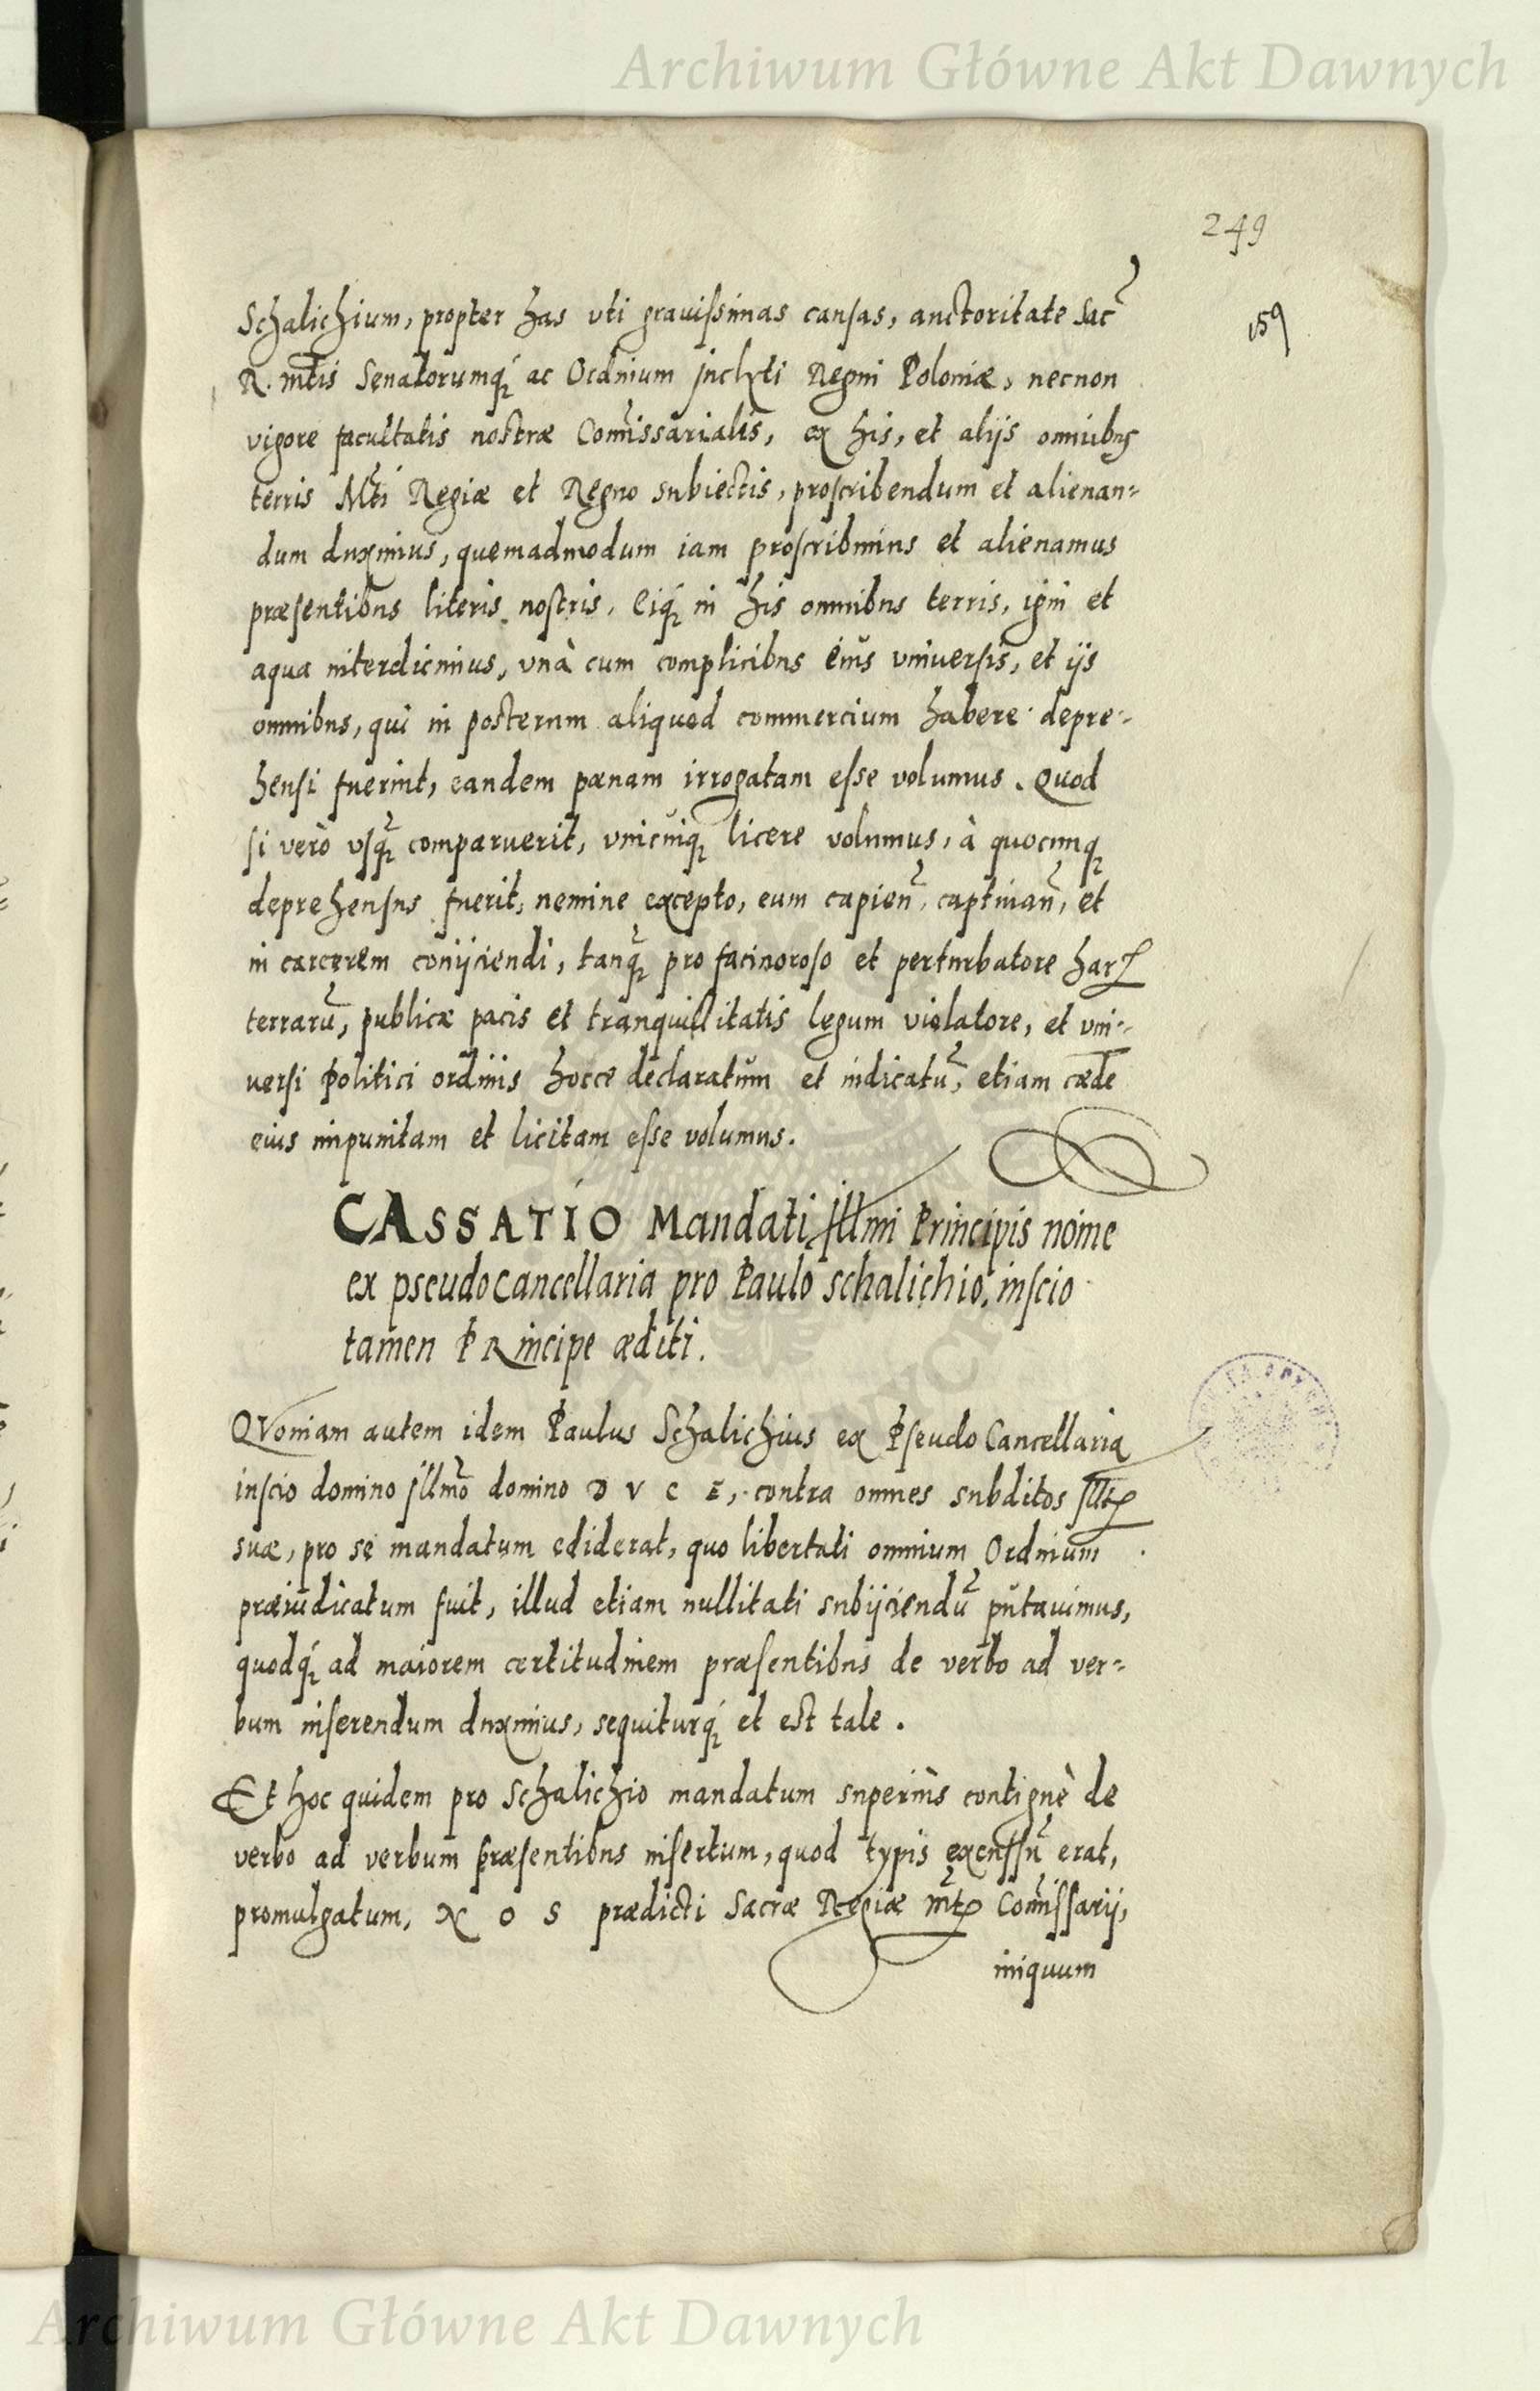 Archiwum Główne Akt Dawnych
249
159
Schalichium, propter has vti grauissimas causas, auctoritate Sac̃
R. mt̃is Senatorumq́ꝫ ac Ordinum jnclyti Regni Poloniæ, necnon
vigore facultatis nostræ Com̃issarialis, ex his, et alijs omnibus
terris Mt̃i Regiæ et Regno subiectis, proscribendum et alienan=
dum duximus, quemadmodum iam proscribimus et alienamus
præsentibus literis nostris. Eiq́ꝫ in his omnibus terris, igni et
aqua interdicimus, vnà cum complicibus eius vniuersis, et ijs
omnibus, qui in posterum aliquod commercium habere depre=
hensi fuerint, eandem pœnam irrogatam esse volumus. Quod
si verò vsq̃ꝫ comparuerit, vnicuiqꝫ licere volumus, à quocunqꝫ
deprehensus fuerit, nemine excepto, eum capien̄, captiuan̄, et
in carcerem conijciendi, tanq̃ꝫ pro facinoroso et perturbatore harꝝ
terrarũ, publicæ pacis et tranquillitatis legum violatore, et vni=
uersi Politici ordinis hocce declaratum et indicatũ, etiam cæde
eius impunitam et licitam esse volumus.
CASSATIO Mandati Jllmi Principis noīne
ex pseudocancellaria pro Paulo schalichio, inscio
tamen PRincipe æditi.
QVoniam autem idem Paulus Schalichius ex Pseudo Cancellaria
inscio domino Jllm̃o domino D V C E, contra omnes subditos Jllt̃ꝭ
suæ, pro se mandatum ediderat, quo libertati omnium Ordinum
præiudicatum fuit, illud etiam nullitati subijciendũ putauimus,
quodq́ꝫ ad maiorem certitudinem præsentibus de verbo ad ver=
bum inserendum duximus, sequiturq́ꝫ et est tale.
Et hoc quidem pro Schalichio mandatum superius contiguè de
verbo ad verbum præsentibus insertum, quod typis excussũ erat,
promulgatum, N O S prædicti Sacræ Regiæ mt̃ꝭ Com̃issarij,
iniquum
Archiwum Główne Akt Dawnych